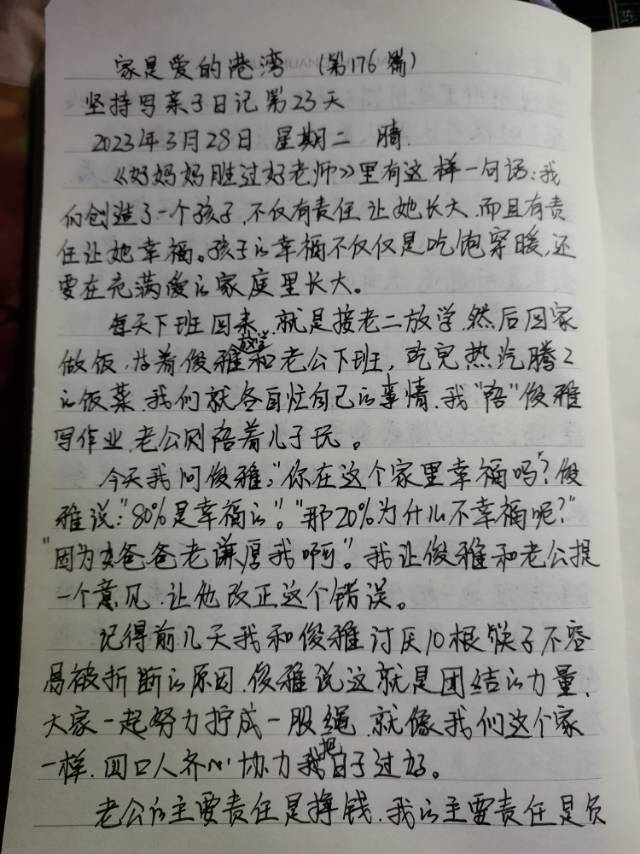 家是爱的港湾 (第176篇)
坚持写亲子日记第23天
2023年3月28日 星期二 晴
《好妈妈胜过好老师》里有这样一句话:我
们创造了一个孩子,不仅有责任让她长大,而且有责
任让她幸福。孩子的幸福不仅仅是吃饱穿暖,还
要在充满爱的家庭里长大。
每天下班回来,就是接老二放学,然后回家
做饭,等着俊雅放学和老公下班,吃完热汽腾2
的饭菜,我们就各自忙自己的事情,我"陪"俊雅
写作业,老公则陪着儿子玩。
今天我问俊雅,"你在这个家里幸福吗?"俊
雅说:"80%是幸福的"。"那20%为什么不幸福呢?"
"因为爸爸老谦厚我啊"。我让俊雅和老公提
一个意见,让他改正这个错误。
记得前几天我和俊雅讨厌10根筷子不容
易被折断的原因,俊雅说这就是团结的力量,
大家一起努力拧成一股绳,就像我们这个家
一样,四口人齐心协力把日子过好。
老公的主要责任是挣钱,我的主要责任是负